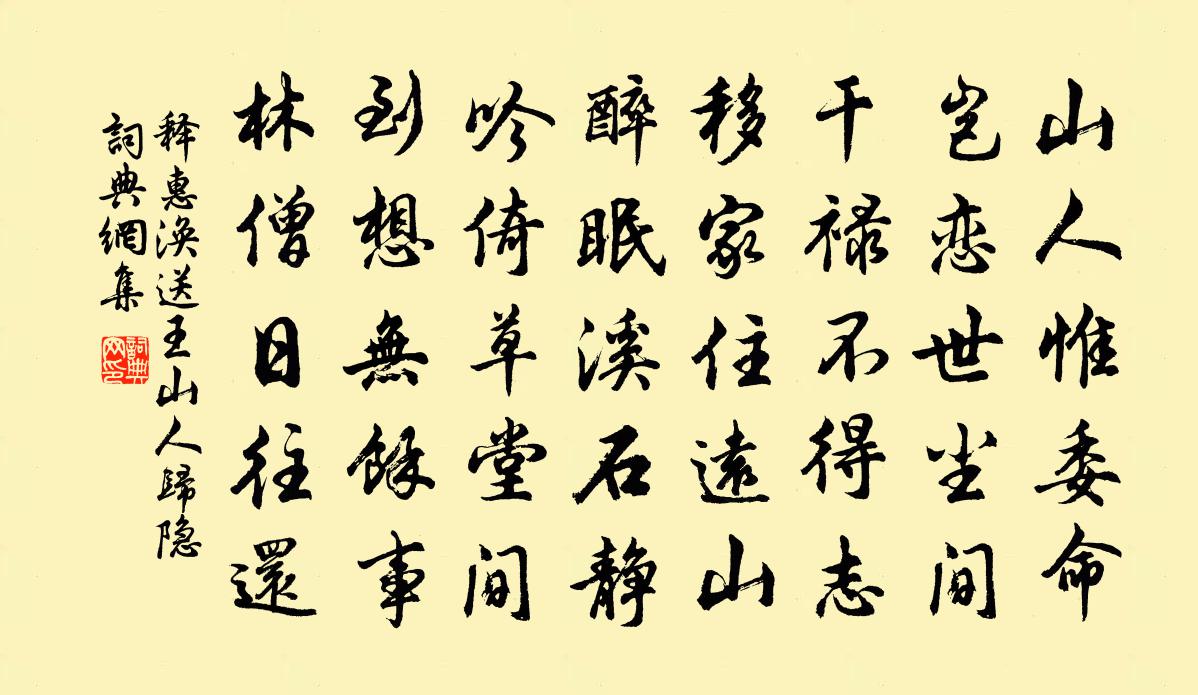 山人惟委命
岂恋世尘间
干禄不得志
移家住遠山
醉眠溪石静
吟倚草堂间
到想無餘事
林僧日往還
释惠涣送王山人歸隐
詞典網集
詞典网印